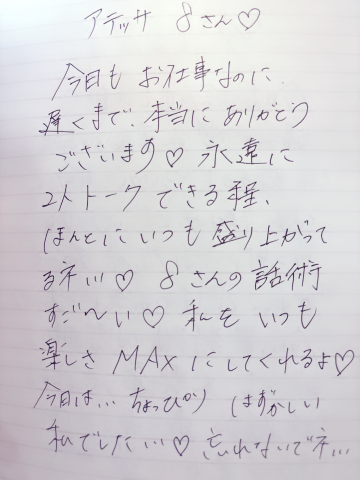 アテッサ 8さん♡
今日も お仕事なのに
遅くまで、本当に ありがとう
ございます♡ 永遠に
2人トーク できる程、
ほんとにいつも 盛り上がって
るネ…♡ 8さんの 話術
すご〜い♡ 私を いつも
楽しさ MAXにしてくれるよ♡
今日は… ちょっぴり はずかしい
私でした…♡ 忘れないでネ…